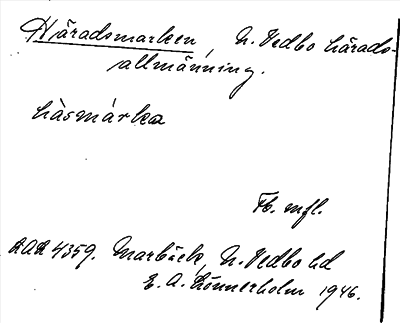 Häradsmarken, N. Vedbo härads-
allmänning.
hàsmárka
Tb. mfl.
4359. Marbäck, N. Vedbo hd
E. A. Lönnerholm 1946.